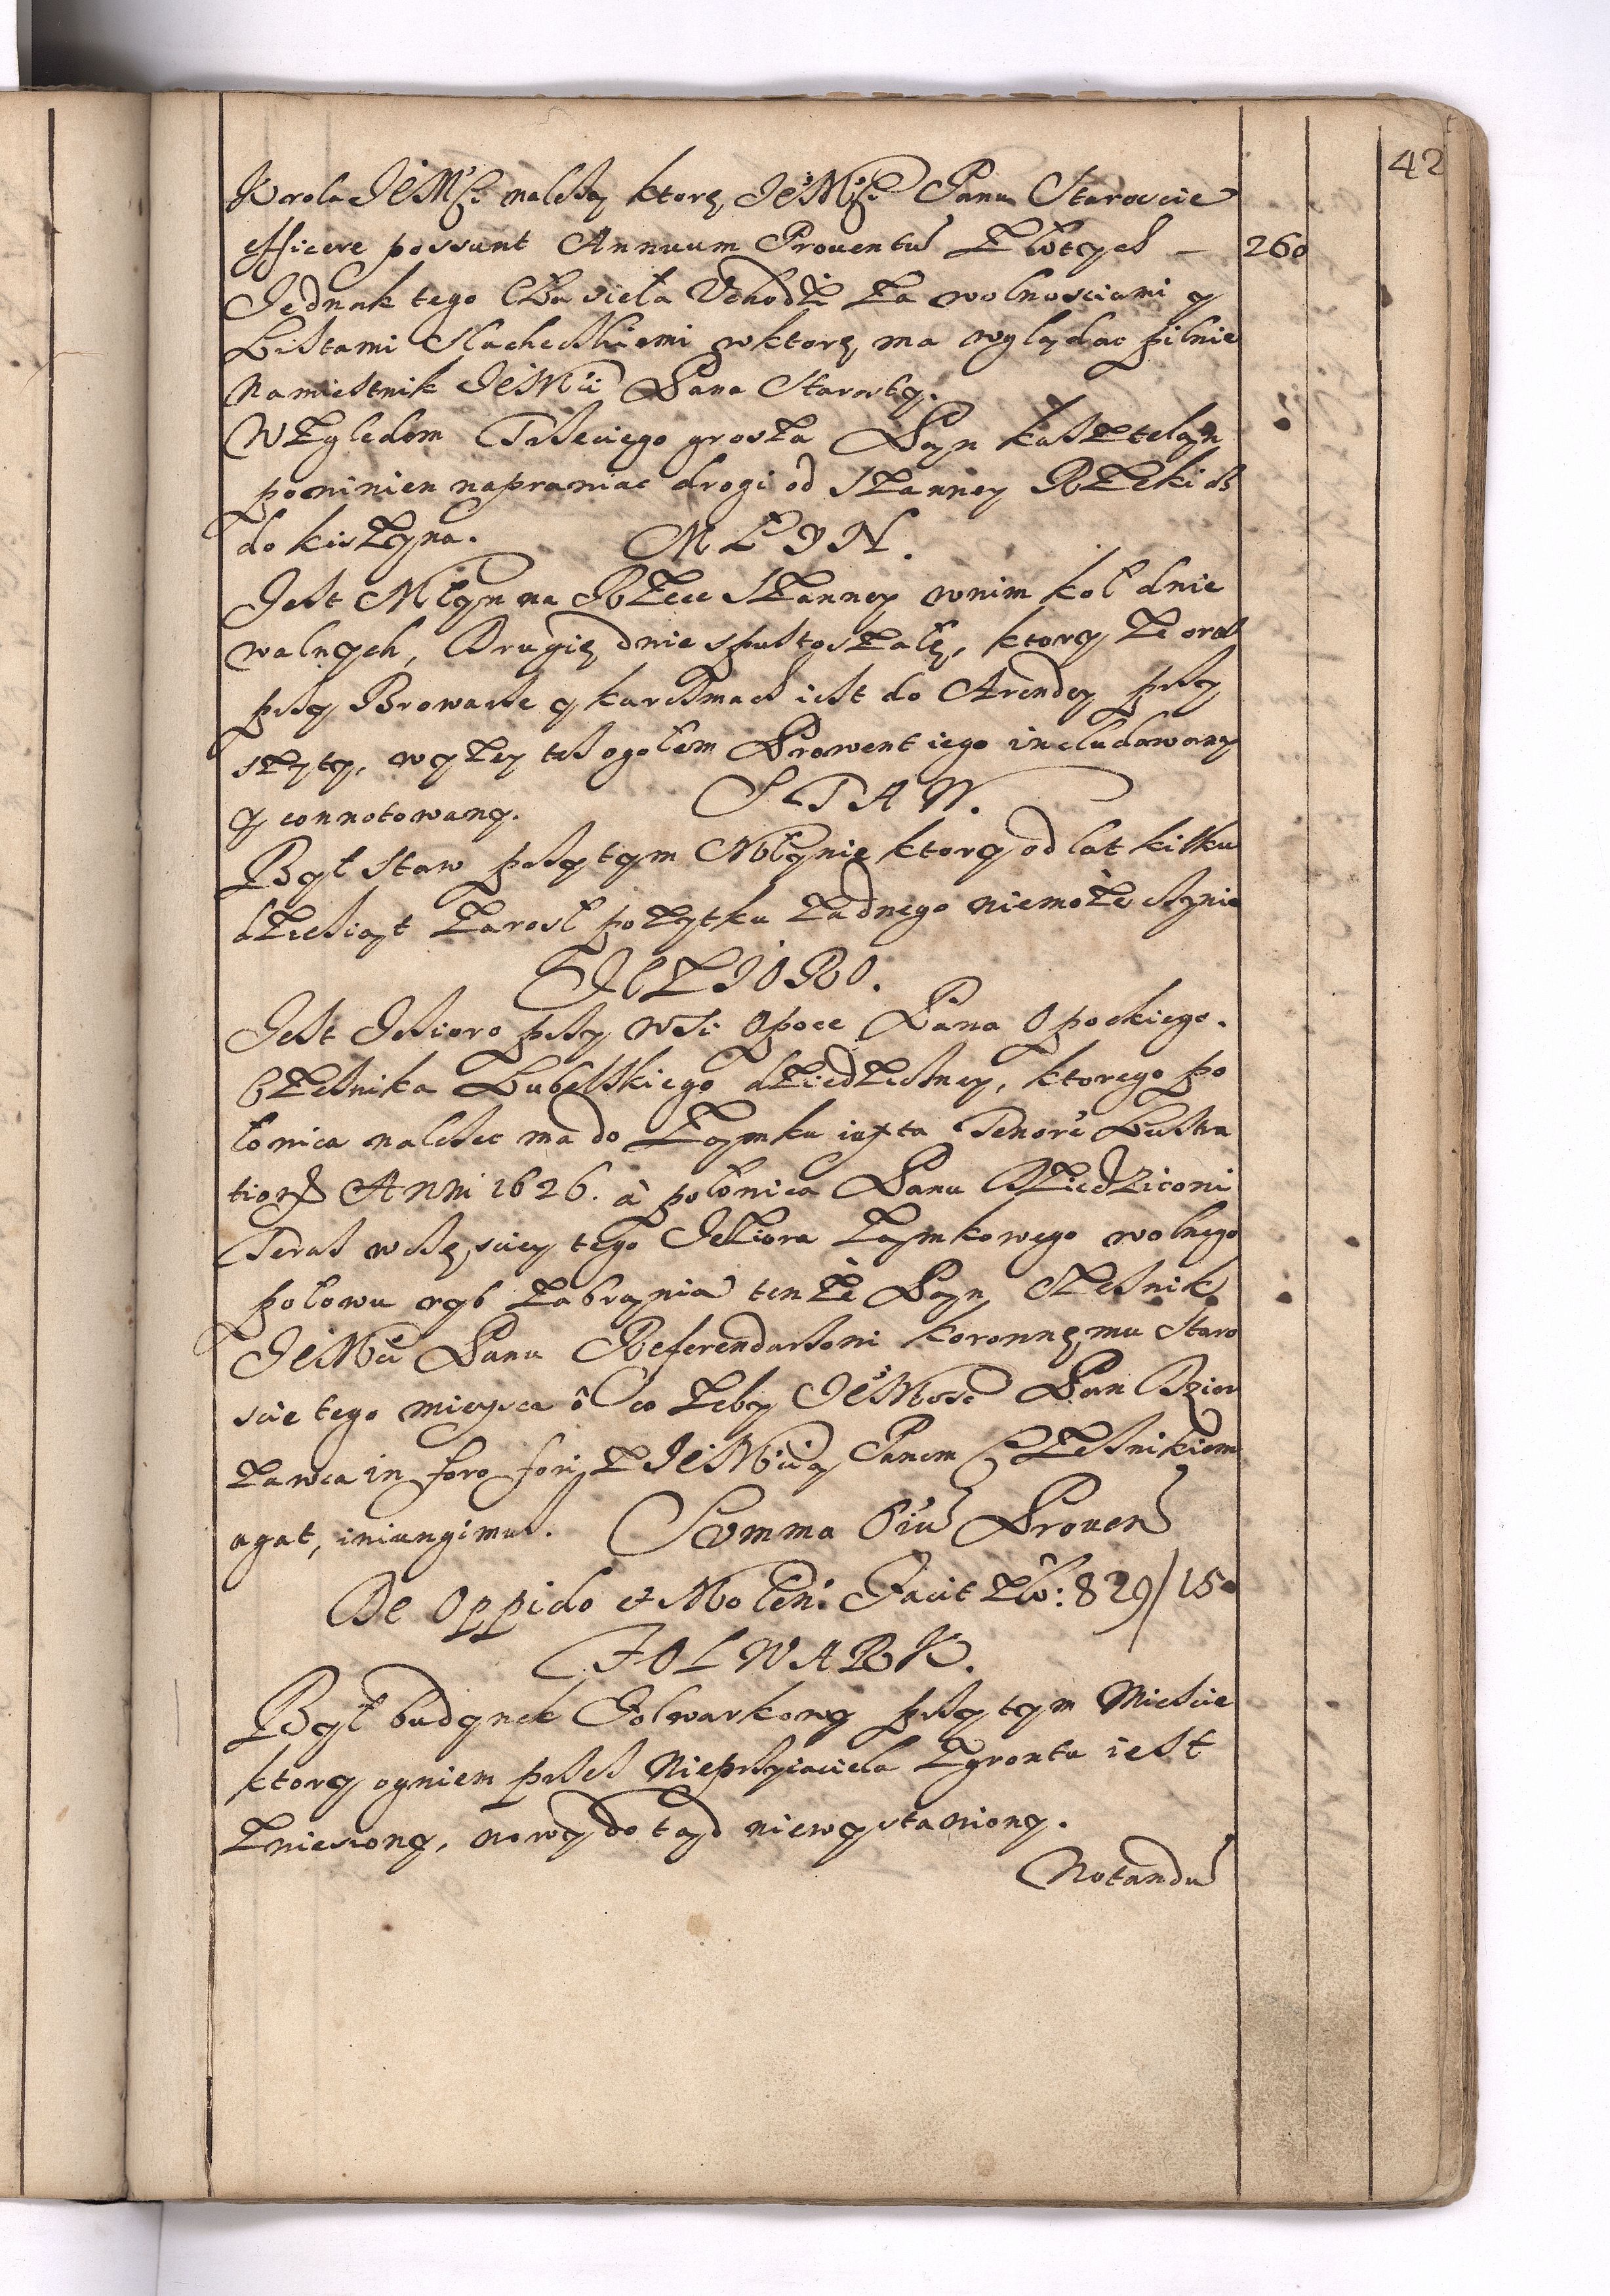 42
Krola JeMsci nalezą ktore JeMsci Panu Staroscie
efficere possunt Annuum Prouentu Złotych — 260
Jednak tego Cła siela Vchodzi za wolnosciami y
Listami Slacheckiemi w ktore ma wglądac pilnie
Namiestnik JeMci Pana Starosty.
Względem Trzeciego grosza Pan kasztelan
powinien naprawiac drogi od Szanney Rzeki asz
do kiszyna. MŁYN.
Jest Młyn na Rzece Szanney w nim koł dwie
walnych, Drugie dwie spustoszałe, ktory zeorał
przy Browarze y karczmach iest do Arendy przy
szyty, wyzey tez ogołem Prowent iego includowany
y connotowany. STAW.
Był Staw przy tym Młynie ktory od lat kilku
dziesiąt zarosł pozytku zadnego niemoze czynic
JEZIORO.
Jest Jezioro przy wsi Opoce Pana Opockiego.
Czesnika Lubelskiego dziedziczney, ktorego po
łowica nalezec ma do Zamku iuxta Tenore Lustra
tionis Anni 1626. à połowica Panu Dziedzicowi
Teraz w częsciey tego Jeziora Zamkowego wolnego
połowu ryb zabrania tenze Pan Czesnik
JeMci Panu Referendarzowi koronnemu Staro
scie tego mieysca ô co zeby JeMosc Pan Dzier
zawca in foro fori z JeMcią Panem Czesnikiem
agat, iniungimus. Summa Huius Prouen
De Oppido et Molen: Facit Zło: 829/15
FOLWARK.
Był budynek Folwarkowy przy tym Miescie
ktory ogniem przez Nieprzyiaciela zgruntu iest
zniesiony, nowy do tąd niewystawiony.
Notandu